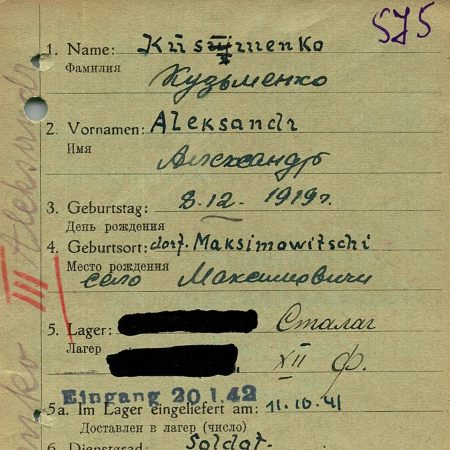 575
1. Name: Kusmenko
Фамилия Кузьменко
2. Vornamen: Aleksandr
Имя Александр
3. Geburtstag: 8.12. 1919г.
День рождения
4. Geburtsort: dorf. Maksimowitschi
Место рождения
село Максимовичи
5. Lager: Сталаг
Лагер XII Ф.
Eingang 20.1.42
5a. Im Lager eingeliefert am: 11.10.41
Доставлен в лагер (число)
6. Dienstgrad: Soldat.
III Aleksandr